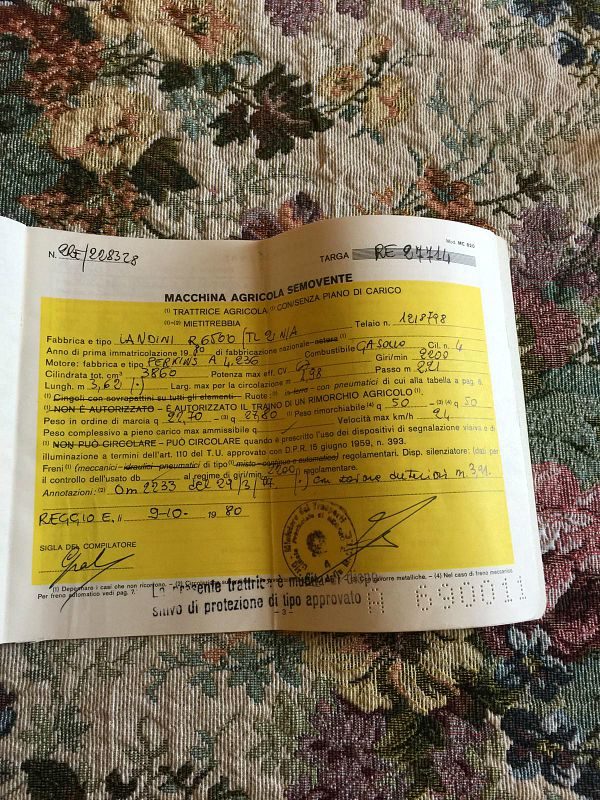 Mod. MC 820
N. 2RE/228328 TARGA RE 27714
MACCHINA AGRICOLA SEMOVENTE
(1) TRATTRICE AGRICOLA (1) CON/SENZA PIANO DI CARICO
(1)-(2) MIETITREBBIA
Fabbrica e tipo LANDINI R 6500 Telaio n. 1218798
Anno di prima immatricolazione 19 80 di fabbricazione nazionale - estera (1)
Motore: fabbrica e tipo PERKINS A 4.236 Combustibile GASOLIO Cil. n. 4
Cilindrata tot. cm³ 3860 Potenza max eff. CV Giri/min 2200
Lungh. m 3,62 (.) Largh. max per la circolazione m 1,98 Passo m 2,21
(1) Cingoli con sovrapattini su tutti gli elementi - Ruote: con pneumatici di cui alla tabella a pag. 6.
(1) NON È AUTORIZZATO - È AUTORIZZATO IL TRAINO DI UN RIMORCHIO AGRICOLO (1)
Peso in ordine di marcia q 27,70 - (3) 27,80 (1) Peso rimorchiabile (4) q 50 - (3) (4) q 50
Peso complessivo a pieno carico max ammissibile q Velocità max km/h 24
(1) NON PUÒ CIRCOLARE - PUÒ CIRCOLARE quando è prescritto l'uso dei dispositivi di segnalazione visiva e di
illuminazione a termini dell'art. 110 del T.U. approvato con D.P.R. 15 giugno 1959, n. 393.
Freni (1) (meccanici - idraulici - pneumatici) di tipo (1) misto - continuo e automatico) regolamentari. Disp. silenziatore: (dati per
il controllo dell'usato db al regime di giri/min 2200) regolamentare.
Annotazioni: (2) Om 2233 del 29/3/77 .) Con zavorre anteriori m. 3,91
REGGIO E. lì 9-10- 19 80
SIGLA DEL COMPILATORE
(1) Depennare i casi che non ricorrono. zavorre metalliche. - (4) Nel caso di freno meccanico
Per freno automatico vedi pag. 7.
La presente trattrice è munita di dispo
sitivo di protezione di tipo approvato
- 3 -
690011